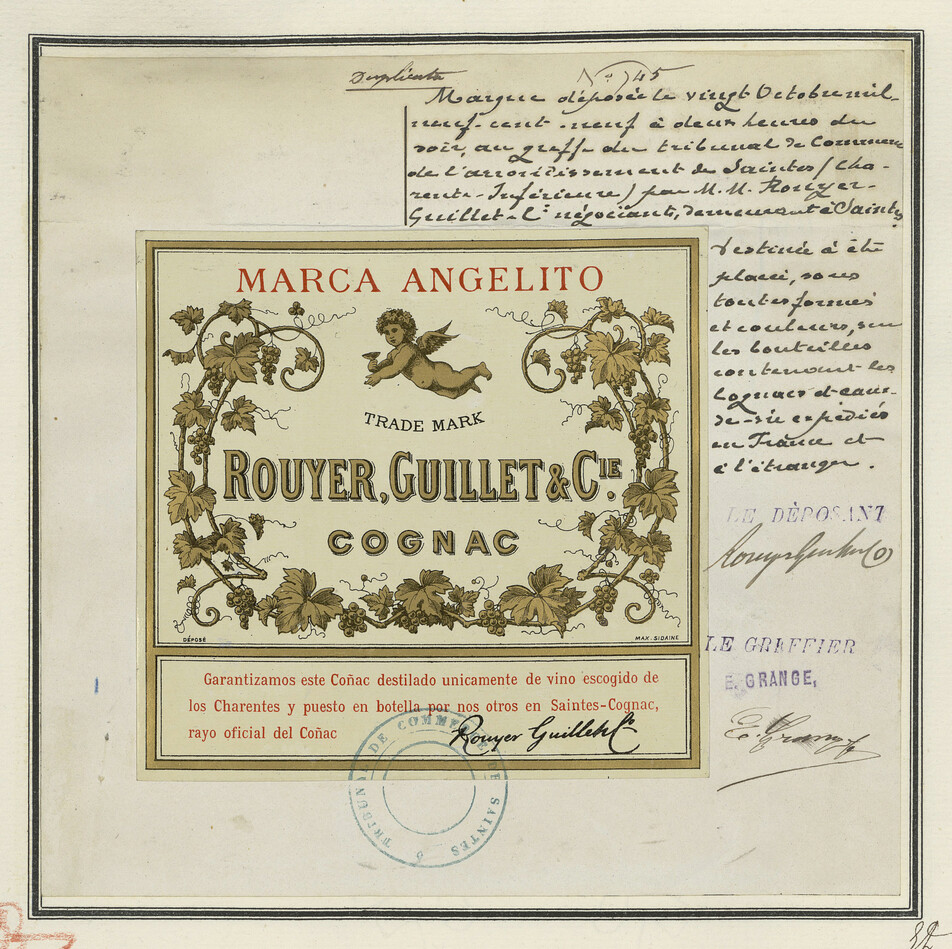 Duplicata
No 945
Marque déposée le vingt Octobre mil-
neuf-cent-neuf à deux heures du
soir, au greffe du tribunal de Commerce
de l'arrondissement de Saintes (Cha-
rente-Inférieure) par M. M. Rouyer-
Guillet & Cie négociants, demeurant à Saintes
destinée à être
placée, sous
toutes formes
et couleurs, sur
les bouteilles
contenant les
Cognacs et eaux-
de-vie expédiés
en France et
à l'étranger.
MARCA ANGELITO
TRADE MARK
ROUYER, GUILLET & CIE.
COGNAC
DÉPOSÉ
MAX. SIDAINE
Garantizamos este Coñac destilado unicamente de vino escogido de
los Charentes y puesto en botella por nos otros en Saintes-Cognac,
rayo oficial del Coñac
Rouyer Guillet & Co
LE DÉPOSANT
Rouyer Guillet & Co
LE GREFFIER
E. GRANGE,
E. Grange
TRIBUNAL DE COMMERCE DE SAINTES